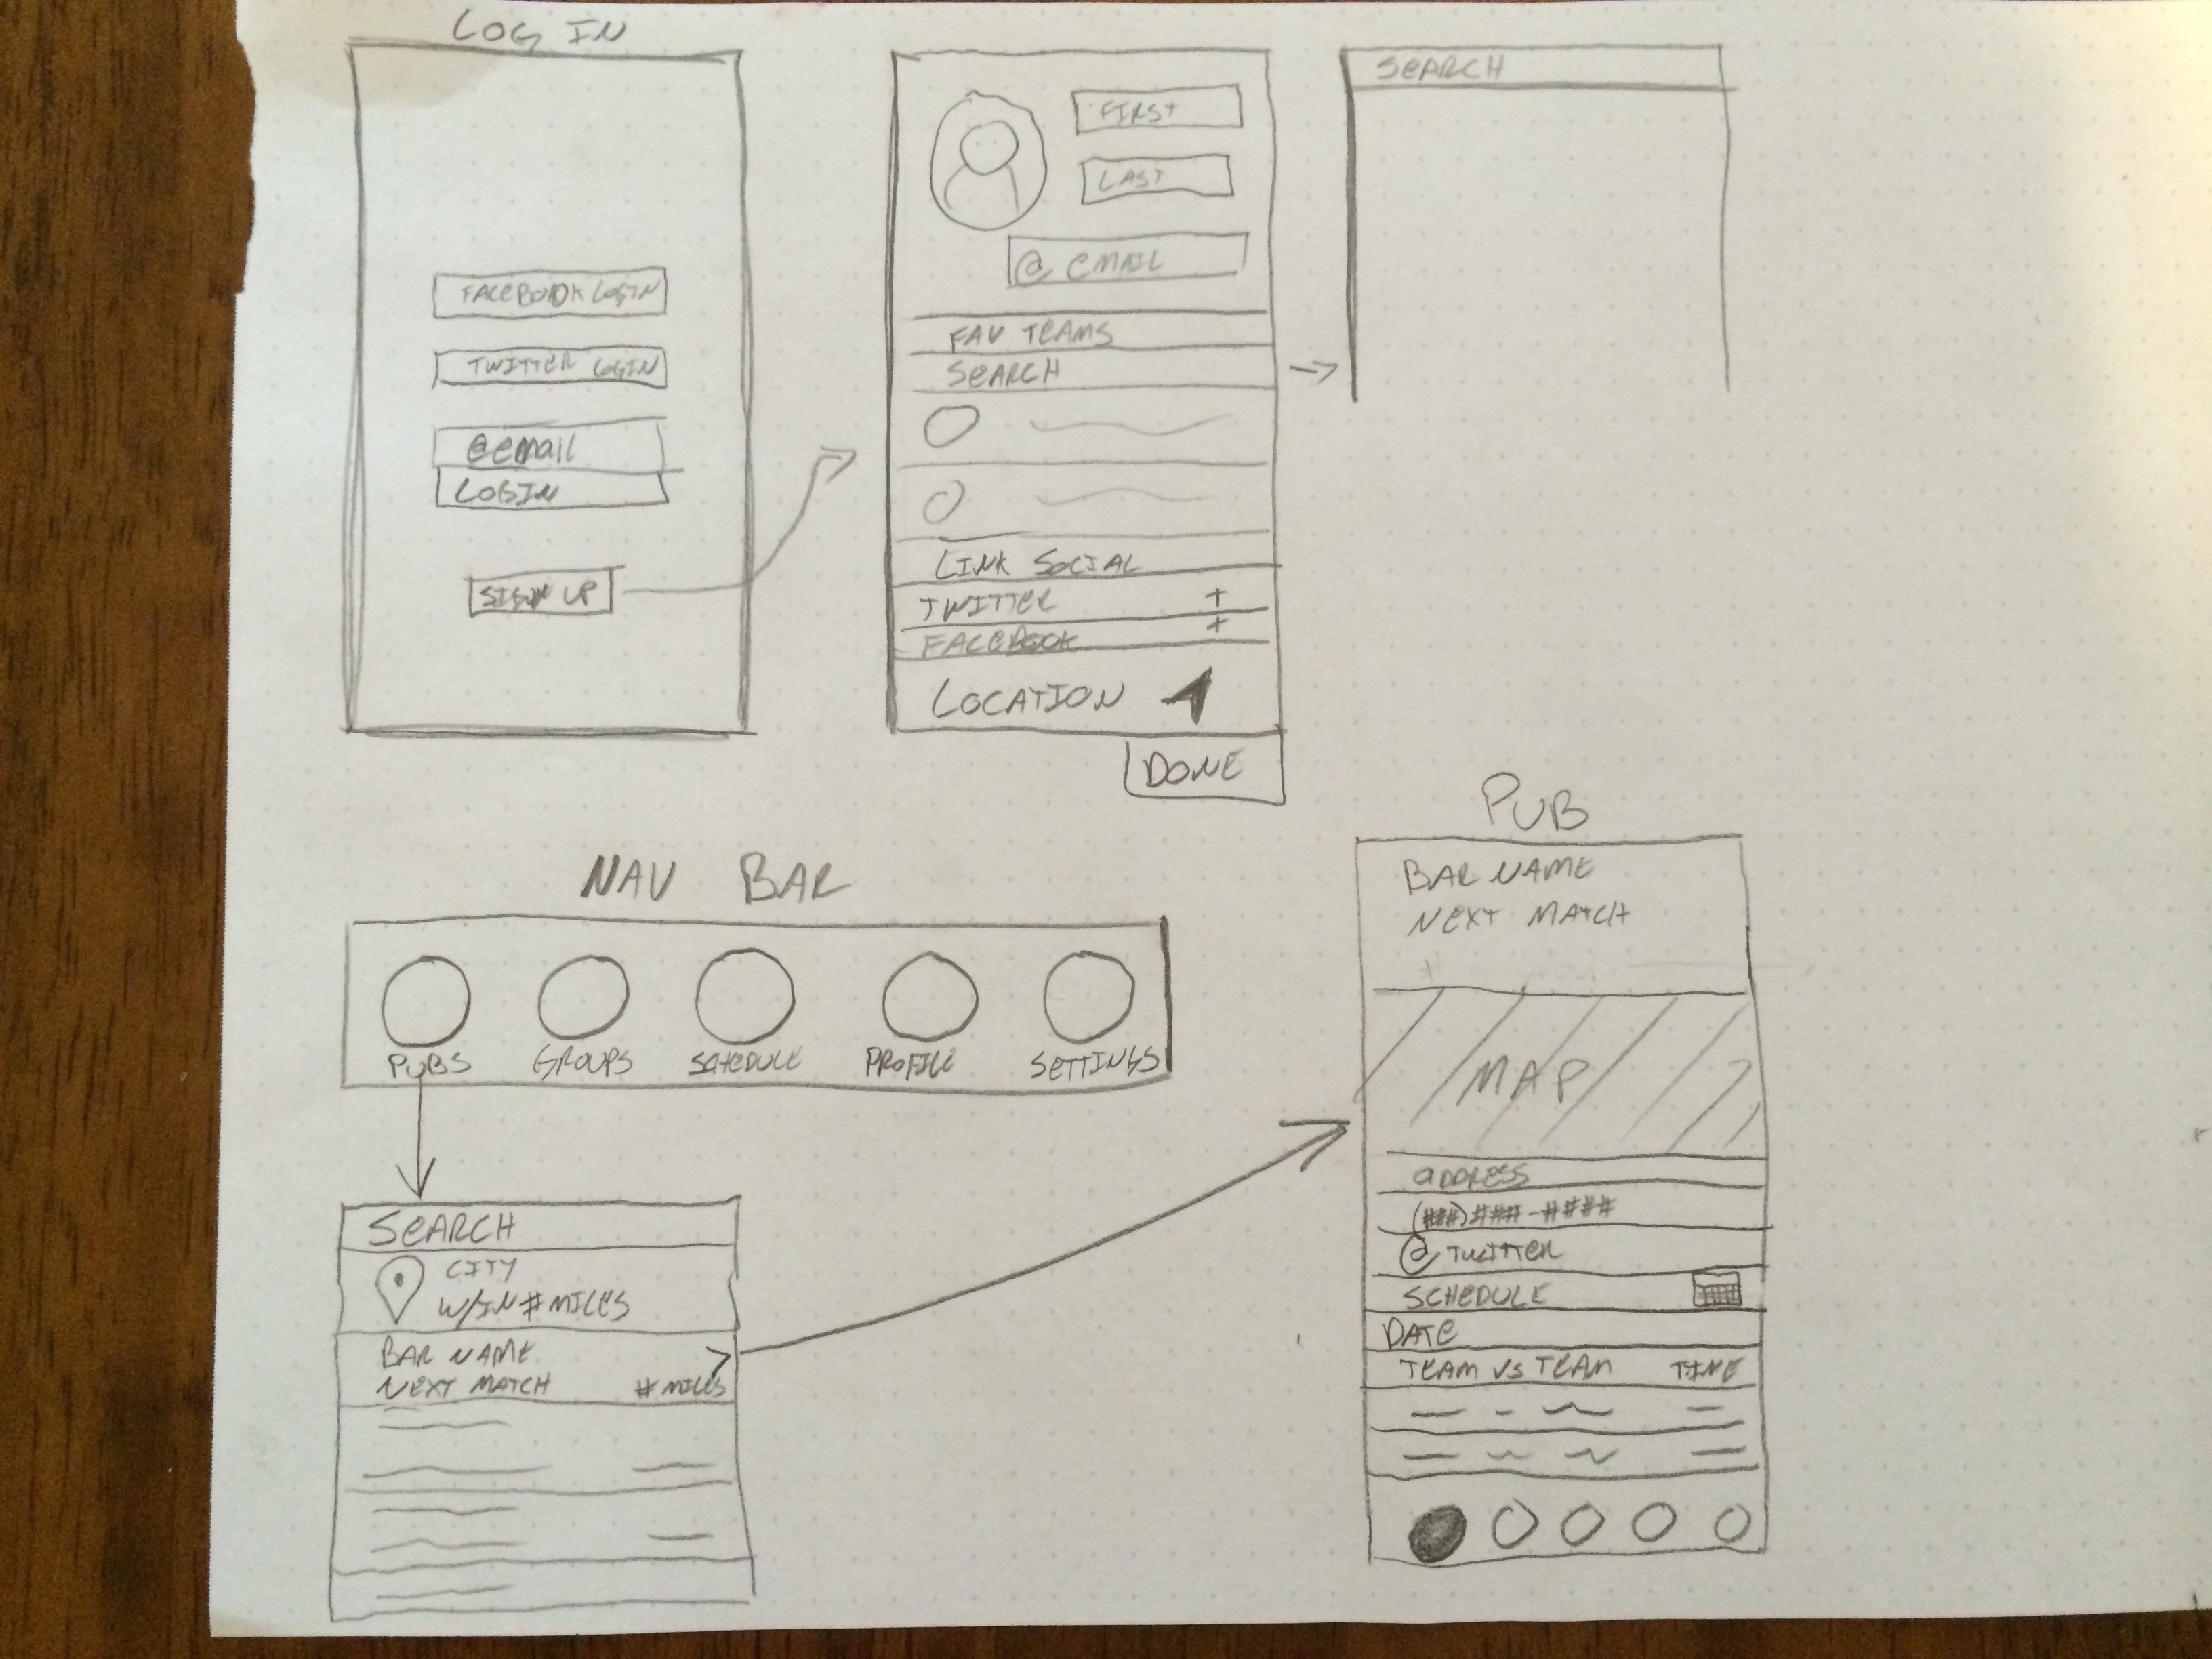 LOG IN
FACEBOOK LOGIN
TWITTER LOGIN
@EMAIL
LOGIN
SIGN UP
FIRST
LAST
@ EMAIL
FAV TEAMS
SEARCH
LINK SOCIAL
TWITTER +
FACEBOOK +
LOCATION
DONE
SEARCH
NAV BAR
PUBS GROUPS SCHEDULE PROFILE SETTINGS
SEARCH
CITY
W/IN # MILES
BAR NAME >
NEXT MATCH # MILES
PUB
BAR NAME
NEXT MATCH
MAP
ADDRESS
(###) ###-####
@ TWITTER
SCHEDULE
DATE
TEAM VS TEAM TIME